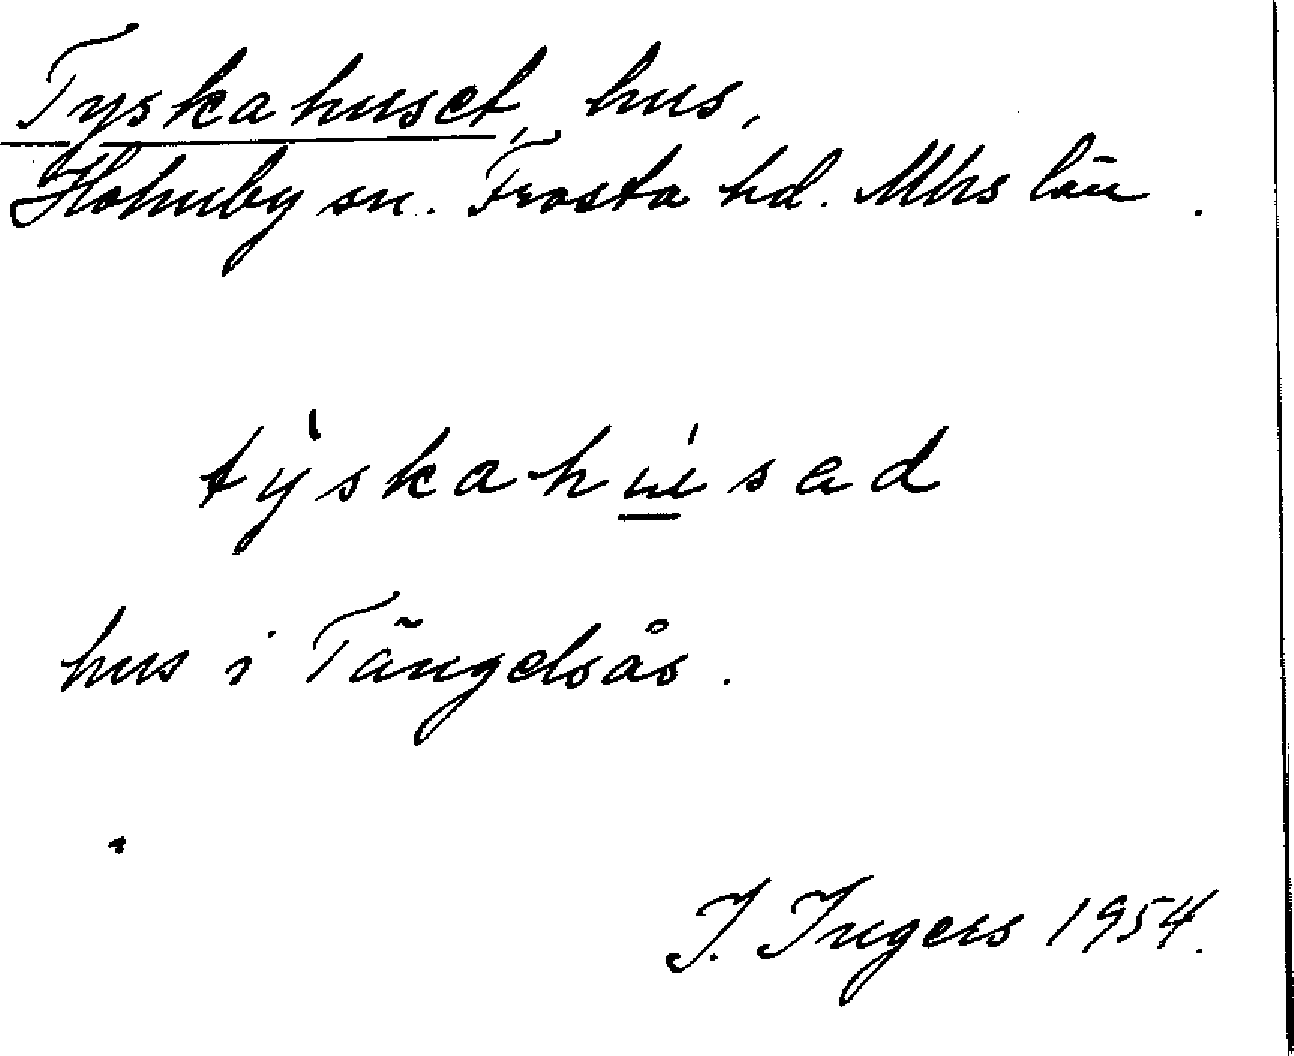 Tyskahuset, hus,
Hohuby sn. Frosta hd. Mhs län.
tỳskahúsad
hus i Tängelsås.
I. Ingers 1954.